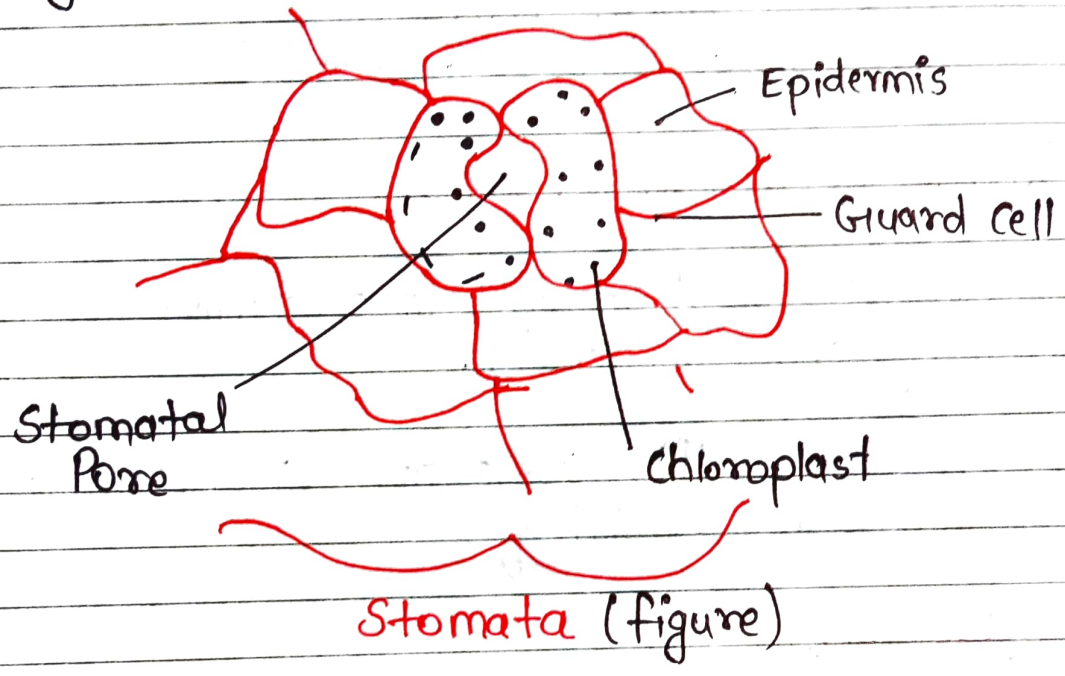 Epidermis
Guard cell
Stomatal
Pore
Chloroplast
Stomata (figure)